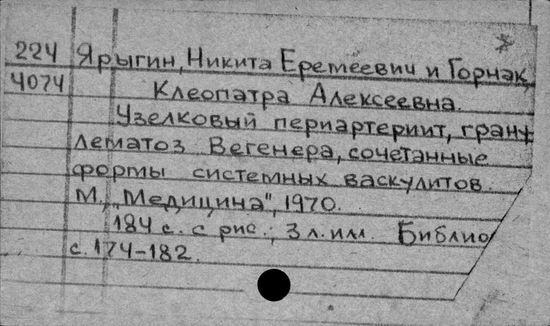 224 Ярыгин, Никита Еремеевич и Горнак,
4074 Клеопатра Алексеевна.
Узелковый периартериит, грану
лематоз Вегенера, сочетанные
формы системных васкулитов.
М., "Медицина", 1970.
184 с. с рис.; 3 л. илл. Библио
с. 174-182.